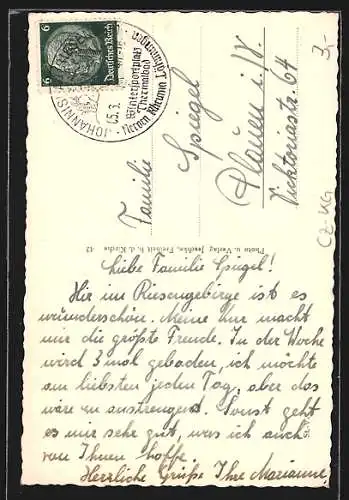 6 Deutsches Reich 6
JOHANNIS
Wintersportplatz
Thermalbad
Nerven Rheuma Lähmungen
3,-
Familie
Spiegel
Plauen i. V.
Vicktoriastr. 64
CZ-UG
Photo u. Verlag Jeschke, Freiheit b. d. Kirche 42
Liebe Familie Spiegel!
Hir im Riesengebirge ist es
wünderschön. Meine Kur macht
mir die größte Freude. In der Woche
wird 3 mal gebaden, ich möchte
am liebsten jeden Tag, aber das
wäre zu anstrengend. Sonst geht
es mir sehr gut, was ich auch
von Ihnen hoffe.
Herzliche Grüße Ihre Marianne.